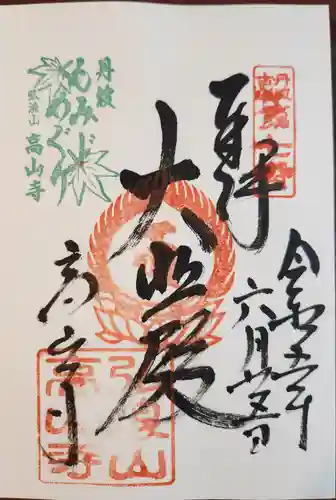 奉拝
令和五年
六月廿五日
大悲殿
高山寺
丹波
もみじめぐり
弘浪山 高山寺
弘浪山
高山寺